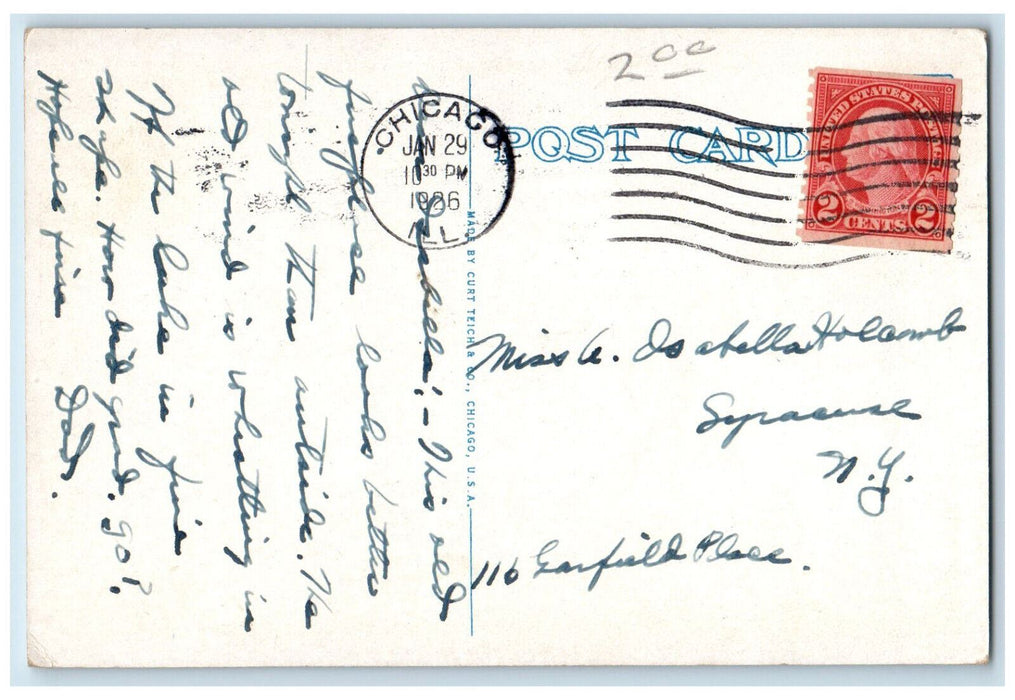 2 00
POST CARD
CHICAGO
JAN 29
10 30 PM
1926
ILL.
UNITED STATES POSTAGE
2 CENTS 2
MADE BY CURT TEICH & CO., CHICAGO, U.S.A.
Isabella:- This old
fireplace looks better
tonight than outside. The
old wind is whistling in
off the lake in fine
style. How did grnd. go?
Hope all fine
Dad.
Miss A. Isabella Holcomb
Syracuse
N.Y.
116 Garfield Place.